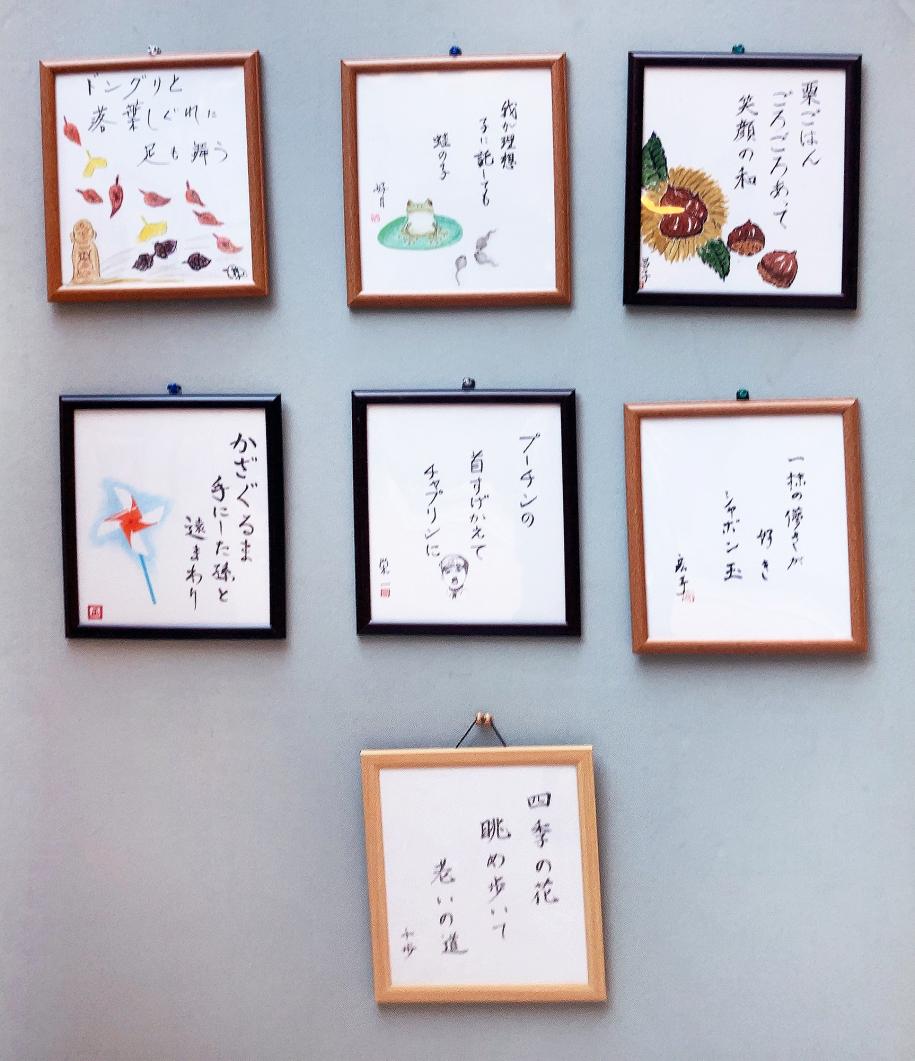 ドングリと
落葉しぐれに
足も舞う
我が理想
子に託しても
蛙の子
好月
栗ごはん
ごろごろあって
笑顔の和
かざぐるま
手にした孫と
遠まわり
プーチンの
首すげかえて
チャプリンに
栄一
一抹の儚さが
好き
シャボン玉
四季の花
眺め歩いて
老いの道